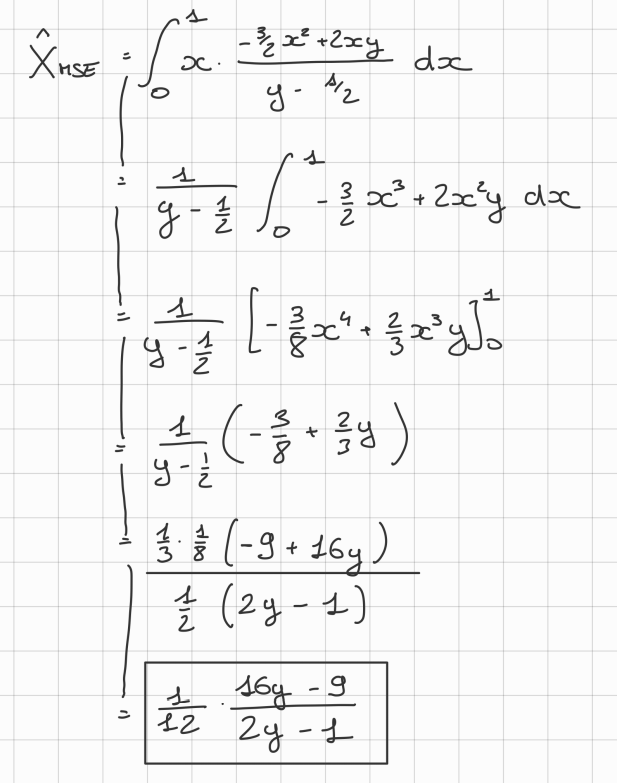 X̂_MSE = ∫₀¹ x · (-3/2 x² + 2xy)/(y - 1/2) dx
= 1/(y - 1/2) ∫₀¹ - 3/2 x³ + 2x²y dx
= 1/(y - 1/2) [- 3/8 x⁴ + 2/3 x³ y]₀¹
= 1/(y - 1/2) (- 3/8 + 2/3 y)
= (1/3 · 1/8 (-9 + 16y))/(1/2 (2y - 1))
= 1/12 · (16y - 9)/(2y - 1)